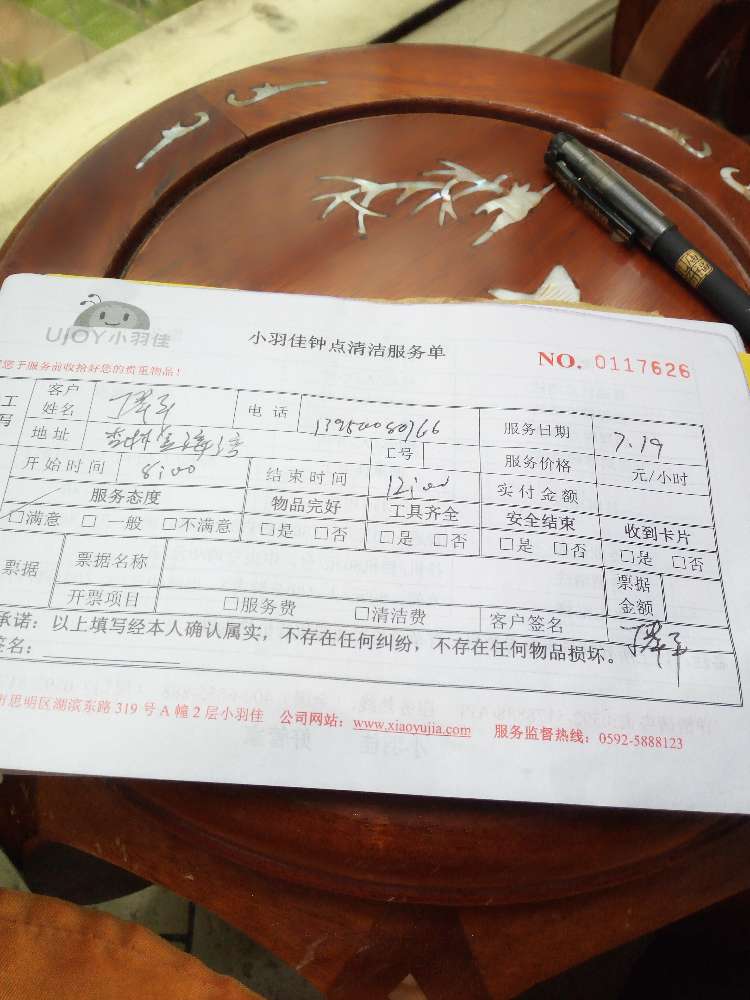 UJOY小羽佳
小羽佳钟点清洁服务单
NO. 0117626
您于服务前收拾好您的贵重物品！
工 客户姓名 电话 服务日期 7.19
写 地址 工号 服务价格 元/小时
开始时间 8:00 结束时间 12:00 实付金额
服务态度 物品完好 工具齐全 安全结束 收到卡片
□满意 □ 一般 □不满意 □是 □否 □是 □否 □是 □否 □是 □否
票据 票据名称 票据金额
开票项目 □服务费 □清洁费 客户签名
承诺：以上填写经本人确认属实，不存在任何纠纷，不存在任何物品损坏。
签名：
市思明区湖滨东路 319 号 A 幢 2 层小羽佳 公司网站：www.xiaoyujia.com 服务监督热线：0592-5888123